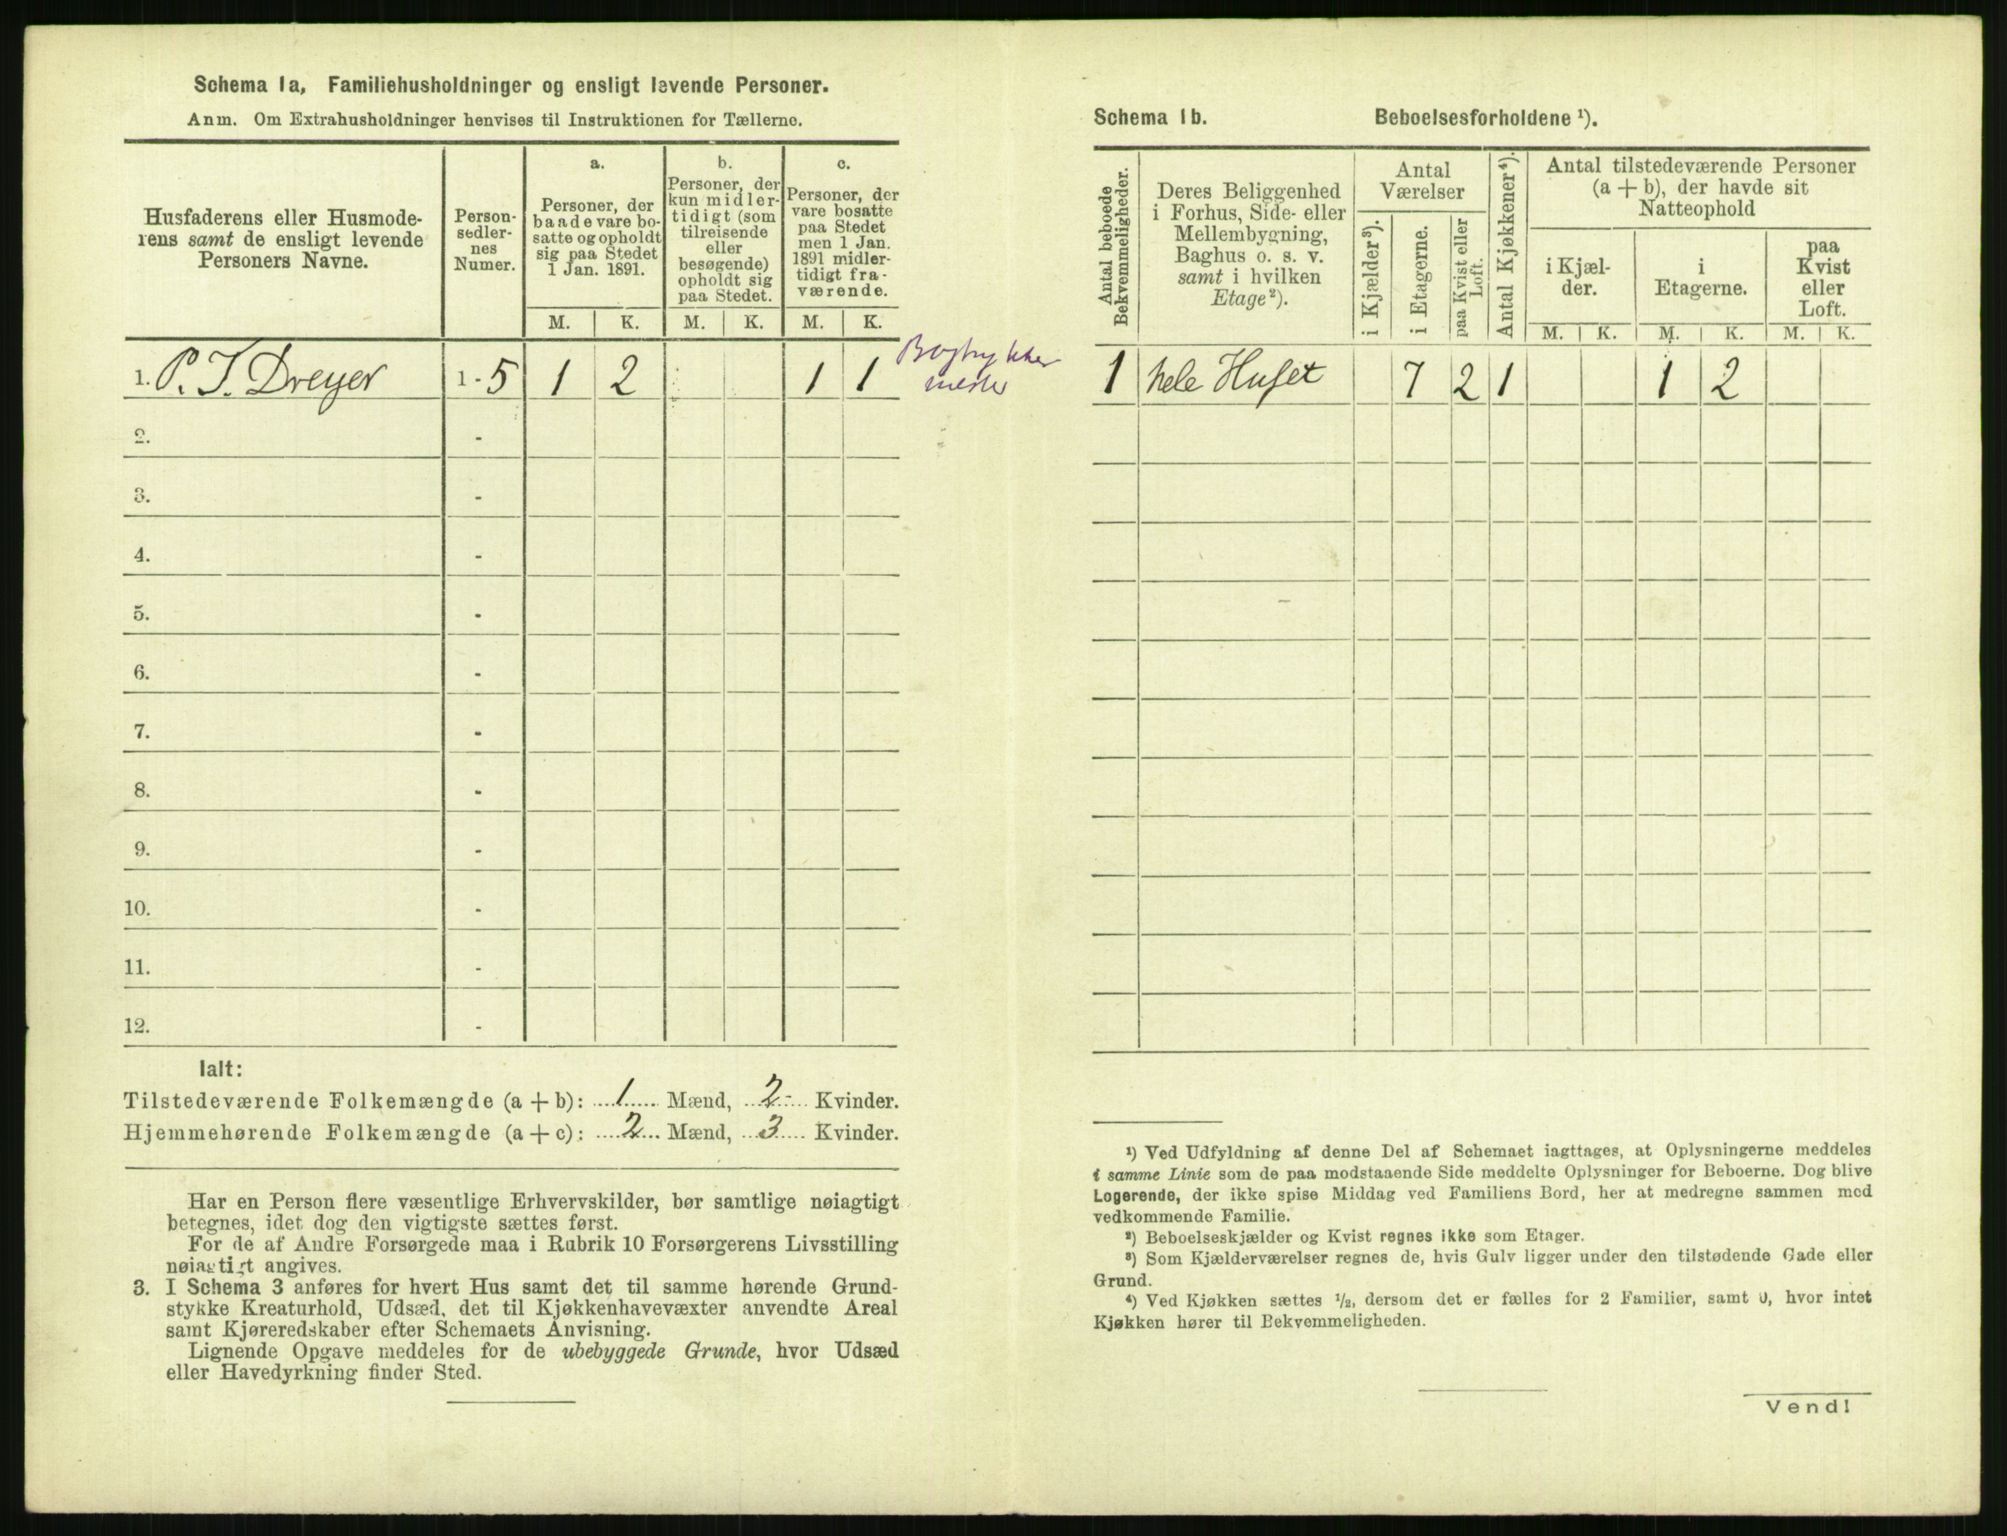 Schema 1a, Familiehusholdninger og ensligt levende Personer.
Anm. Om Extrahusholdninger henvises til Instruktionen for Tællerne.
Husfaderens eller Husmode-
rens samt de ensligt levende
Personers Navne.
Person-
sedler-
nes
Numer.
a.
Personer, der
baade vare bo-
satte og opholdt
sig paa Stedet
1 Jan. 1891.
b.
Personer, der
kun midler-
tidigt (som
tilreisende
eller
besøgende)
opholdt sig
paa Stedet.
c.
Personer, der
vare bosatte
paa Stedet
men 1 Jan.
1891 midler-
tidigt fra-
værende.
M. K. M. K. M. K.
1. P. T. Dreyer 1 - 5 1 2 1 1 Bogtrykker
mester
2. -
3. -
4. -
5. -
6. -
7. -
8. -
9. -
10. -
11. -
12. -
Ialt:
Tilstedeværende Folkemængde (a + b): 1 Mænd, 2 - Kvinder.
Hjemmehørende Folkemængde (a + c): 2 Mænd, 3 Kvinder.
Har en Person flere væsentlige Erhvervskilder, bør samtlige nøiagtigt
betegnes, idet dog den vigtigste sættes først.
For de af Andre Forsørgede maa i Rubrik 10 Forsørgerens Livsstilling
nøiagtigt angives.
3. I Schema 3 anføres for hvert Hus samt det til samme hørende Grund-
stykke Kreaturhold, Udsæd, det til Kjøkkenhavevæxter anvendte Areal
samt Kjøreredskaber efter Schemaets Anvisning.
Lignende Opgave meddeles for de ubebyggede Grunde, hvor Udsæd
eller Havedyrkning finder Sted.
Schema 1b. Beboelsesforholdene ¹).
Antal beboede
Bekvemmeligheder.
Deres Beliggenhed
i Forhus, Side- eller
Mellembygning,
Baghus o. s. v.
samt i hvilken
Etage ²).
Antal
Værelser
i Kjælder ³).
i Etagerne.
paa Kvist eller
Loft.
Antal Kjøkkener ⁴).
Antal tilstedeværende Personer
(a + b), der havde sit
Natteophold
i Kjæl-
der.
i
Etagerne.
paa
Kvist
eller
Loft.
M. K. M. K. M. K.
1 hele Huset 7 2 1 1 2
¹) Ved Udfyldning af denne Del af Schemaet iagttages, at Oplysningerne meddeles
i samme Linie som de paa modstaaende Side meddelte Oplysninger for Beboerne. Dog blive
Logerende, der ikke spise Middag ved Familiens Bord, her at medregne sammen med
vedkommende Familie.
²) Beboelseskjælder og Kvist regnes ikke som Etager.
³) Som Kjælderværelser regnes de, hvis Gulv ligger under den tilstødende Gade eller
Grund.
⁴) Ved Kjøkken sættes ½, dersom det er fælles for 2 Familier, samt 0, hvor intet
Kjøkken hører til Bekvemmeligheden.
Vend!